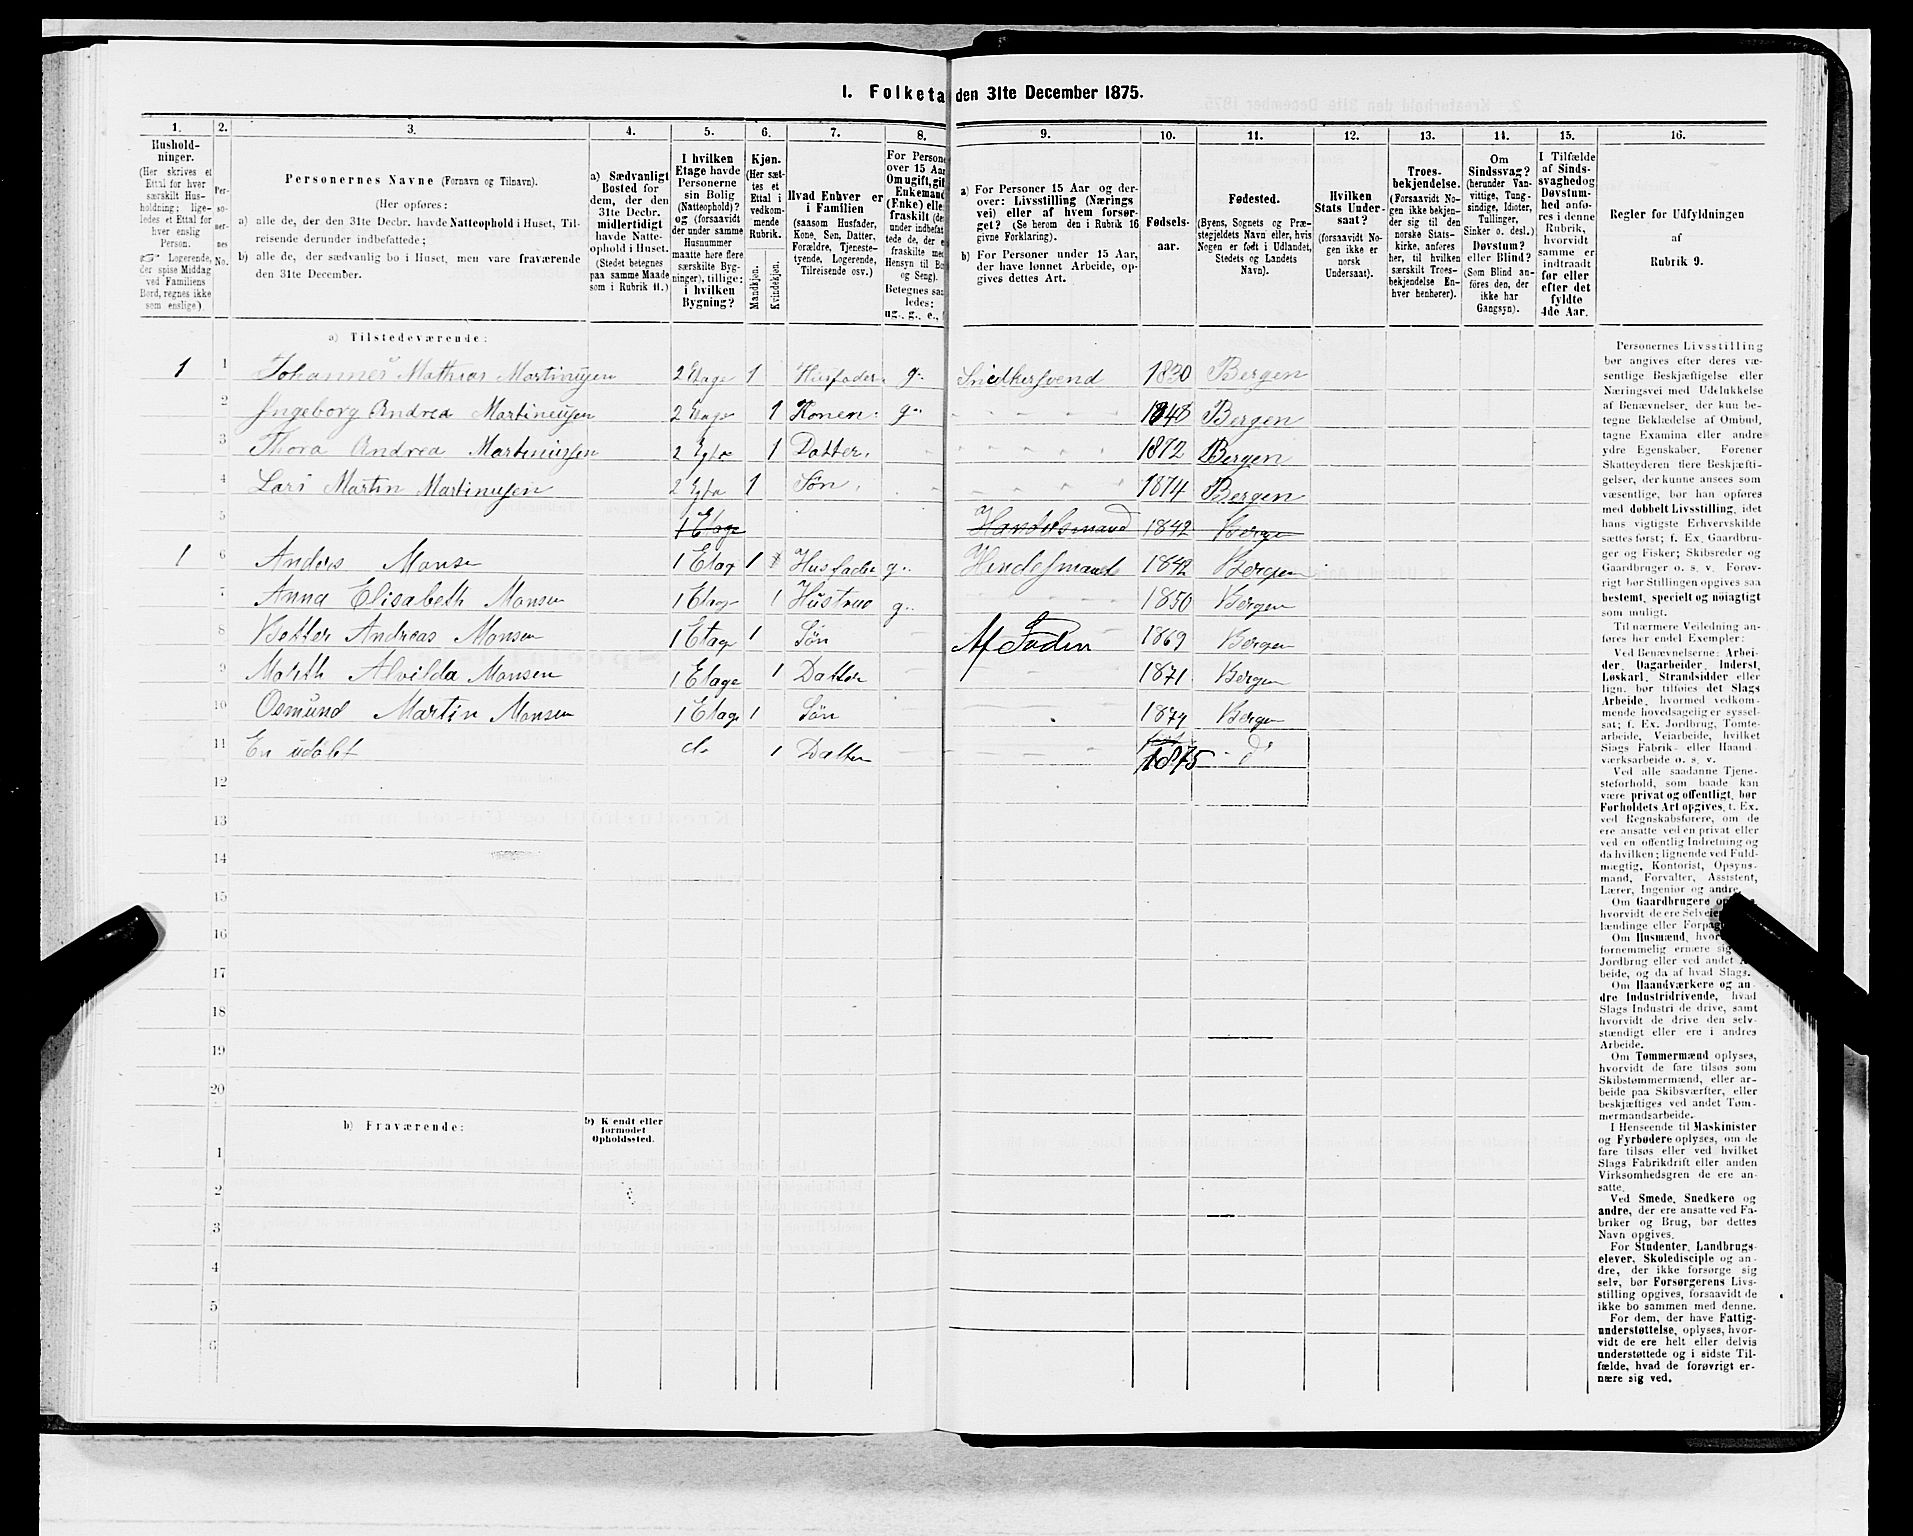 1. Folketa den 31te December 1875.
1. 2. 3. 4. 5. 6. 7. 8. 9. 10. 11. 12. 13. 14. 15. 16.
Hushold-
ninger.
(Her skrives et
Ettal for hver
særskilt Hus-
holdning; lige-
ledes et Ettal for
hver enslig
Person.
☞ Logerende,
der spise Middag
ved Familiens
Bord, regnes ikke
som enslige).
Per-
so-
ner-
nes
No.
Personernes Navne (Fornavn og Tilnavn).
(Her opføres:
a) alle de, der den 31te Decbr. havde Natteophold i Huset, Til-
reisende derunder indbefattede;
b) alle de, der sædvanlig bo i Huset, men vare fraværende
den 31te December.
a) Sædvanligt
Bosted for
dem, der den
31te Decbr.
midlertidigt
havde Natte-
ophold i Huset.
(Stedet betegnes
paa samme Maade
som i Rubrik 11.)
I hvilken
Etage havde
Personerne
sin Bolig
(Natteophold)?
og (forsaavidt
der under samme
Husnummer
maatte høre flere
særskilte Byg-
ninger), tillige:
i hvilken
Bygning?
Kjøn.
(Her sæt-
tes et
Ettal i
vedkom-
mende
Rubrik.
Mandkjøn.
Kvindekjøn.
Hvad Enhver er
i Familien
(saasom Husfader,
Kone, Søn, Datter,
Forældre, Tjeneste-
tyende, Logerende,
Tilreisende osv.)
For Person
over 15 Aar
Om ugift, gif
Enkemand
(Enke) elle
fraskilt (de
under indbefat-
tede de, der e
fraskilte me
Hensyn til Bo
og Seng).
Betegnes saa
ledes:
ug., g., e.,
a) For Personer 15 Aar og der-
over: Livsstilling (Nærings
vei) eller af hvem forsør-
get? (Se herom den i Rubrik 16
givne Forklaring).
b) For Personer under 15 Aar,
der have lønnet Arbeide, op-
gives dettes Art.
Fødsels-
aar.
Fødested.
(Byens, Sognets og Præ-
stegjeldets Navn eller, hvis
Nogen er født i Udlandet,
Stedets og Landets
Navn).
Hvilken
Stats Under-
saat?
(forsaavidt No-
gen ikke er
norsk
Undersaat).
Troes-
bekjendelse.
(Forsaavidt No-
gen ikke bekjen-
der sig til den
norske Stats-
kirke, anføres
her, til hvilken
særskilt Troes-
bekjendelse En-
hver henhører).
Om
Sindssvag?
(herunder Van-
vittige, Tung-
sindige, Idioter,
Tullinger,
Sinker o. desl.)
Døvstum?
eller Blind?
(Som Blind an-
føres den, der
ikke har
Gangsyn).
I Tilfælde
af Sinds-
svaghed og
Døvstum-
hed anfø-
res i denne
Rubrik,
hvorvidt
samme er
indtraadt
før eller
efter det
fyldte
4de Aar.
Regler for Udfyldningen
af
Rubrik 9.
a) Tilstedeværende:
1 1 Johannes Mathias Martinusen 2 Etage 1 Husfader g. Snedkersvend 1830 Bergen
2 Ingeborg Andrea Martinusen 2 Etage 1 Konen g. 1848 Bergen
3 Thora Andrea Martinusen 2 Etg 1 Datter 1872 Bergen
4 Lars Martin Martinusen 2 Etg 1 Søn 1874 Bergen
5 1 Etage Handelsmand 1842 Bergen
1 6 Anders Monsen 1 Etag 1 Husfader g. Handelsmand 1842 Bergen
7 Anna Elisabeth Monsen 1 Etage 1 Hustrue g. 1850 Bergen
8 Andreas Monsen 1 Etage 1 Søn Af Faderen 1869 Bergen
9 Alvilda Monsen 1 Etage 1 Datter 1871 Bergen
10 Osmund Martin Monsen 1 Etage 1 Søn 1874 Bergen
11 En udøbt do 1 Datter 1875 do
12
13
14
15
16
17
18
19
20
b) Fraværende:
b) Kjendt eller
formodet
Opholdssted.
1
2
3
4
5
6
Personernes Livsstilling
bør angives efter deres væ-
sentlige Beskjæftigelse eller
Næringsvei med Udelukkelse
af Benævnelser, der kun be-
tegne Beklædelse af Ombud,
tagne Examina eller andre
ydre Egenskaber. Forener
Skatteyderen flere Beskjæfti-
gelser, der kunne ansees som
væsentlige, bør han opføres
med dobbelt Livsstilling, idet
hans vigtigste Erhvervskilde
sættes først; f. Ex. Gaardbru-
ger og Fisker; Skibsreder og
Gaardbruger o. s. v. Forøv-
rigt bør Stillingen opgives saa
bestemt, specielt og nøiagtigt
som muligt.
Til nærmere Veiledning an-
føres her endel Exempler:
Ved Benævnelserne: Arbei-
der, Dagarbeider, Inderst,
Løskarl, Strandsidder eller
lign. bør tilføies det Slags
Arbeide, hvormed vedkom-
mende hovedsagelig er syssel-
sat; f. Ex. Jordbrug, Tomte-
arbeide, Veiarbeide, hvilket
Slags Fabrik- eller Haand-
værksarbeide o. s. v.
Ved alle saadanne Tjene-
steforhold, som baade kan
være privat og offentligt, bør
Forholdets Art opgives, t. Ex.
ved Regnskabsførere, om de
ere ansatte ved en privat eller
ved en offentlig Indretning og
da hvilken; lignende ved Fuld-
mægtig, Kontorist, Opsyns-
mand, Forvalter, Assistent,
Lærer, Ingeniør og andre.
Om Gaardbrugere
hvorvidt de ere Selveie
lændinge eller Forpag
Om Husmænd, hvor
fornemmelig ernære sig
Jordbrug eller ved andet Ar-
beide, og da af hvad Slags.
Om Haandværkere og an-
dre Industridrivende, hvad
Slags Industri de drive, samt
hvorvidt de drive den selv-
stændigt eller ere i andres
Arbeide.
Om Tømmermænd oplyses,
hvorvidt de fare tilsøs som
Skibstømmermænd, eller ar-
beide paa Skibsværfter, eller
beskjæftiges ved andet Tøm-
mermandsarbeide.
I Henseende til Maskinister
og Fyrbødere oplyses, om de
fare tilsøs eller ved hvilket
Slags Fabrikdrift eller anden
Virksomhedsgren de ere an-
satte.
Ved Smede, Snedkere og
andre, der ere ansatte ved Fa-
briker og Brug, bør dettes
Navn opgives.
For Studenter, Landbrugs-
elever, Skoledisciple og an-
dre, der ikke forsørge sig
selv, bør Forsørgerens Livs-
stilling opgives, forsaavidt de
ikke bo sammen med denne.
For dem, der have Fattig-
understøttelse, oplyses, hvor-
vidt de ere helt eller delvis
understøttede og i sidste Til-
fælde, hvad de forøvrigt er-
nære sig ved.